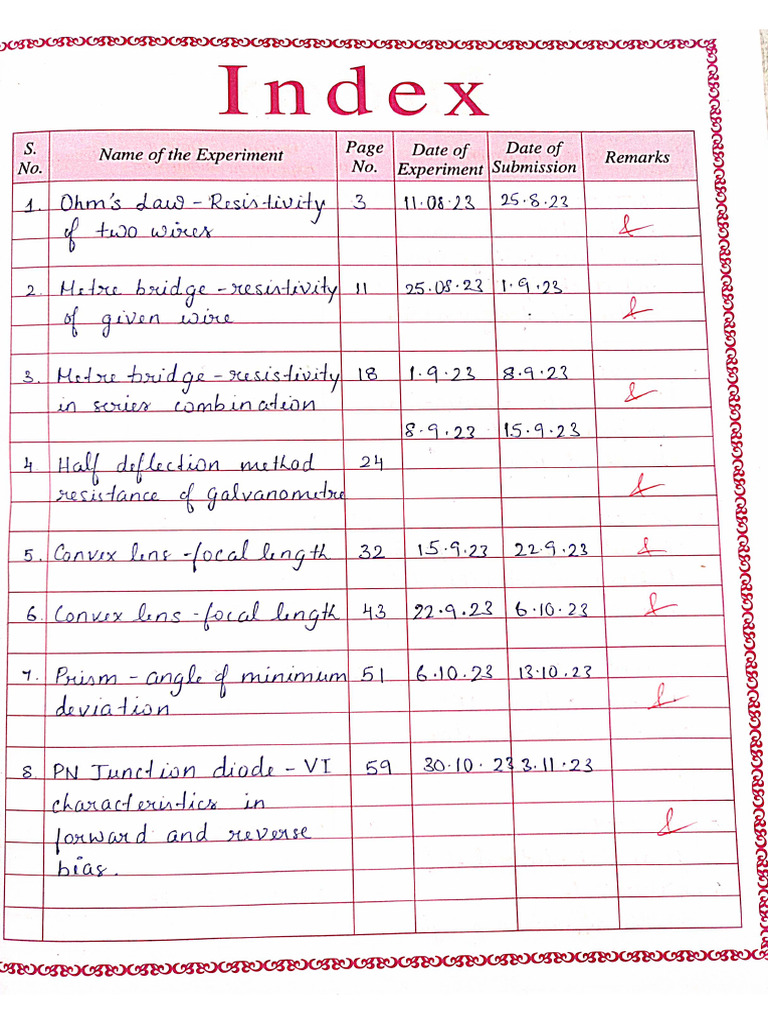 Index
S. No. Name of the Experiment Page No. Date of Experiment Date of Submission Remarks
1. Ohm's Law - Resistivity 3 11.08.23 25.8.23
of two wires
2. Metre bridge - resistivity 11 25.08.23 1.9.23
of given wire
3. Metre bridge - resistivity 18 1.9.23 8.9.23
in series combination
8.9.23 15.9.23
4. Half deflection method 24
resistance of galvanometre
5. Convex lens - focal length 32 15.9.23 22.9.23
6. Convex lens - focal length 43 22.9.23 6.10.23
7. Prism - angle of minimum 51 6.10.23 13.10.23
deviation
8. PN Junction diode - VI 59 30.10.23 3.11.23
characteristics in
forward and reverse
bias.